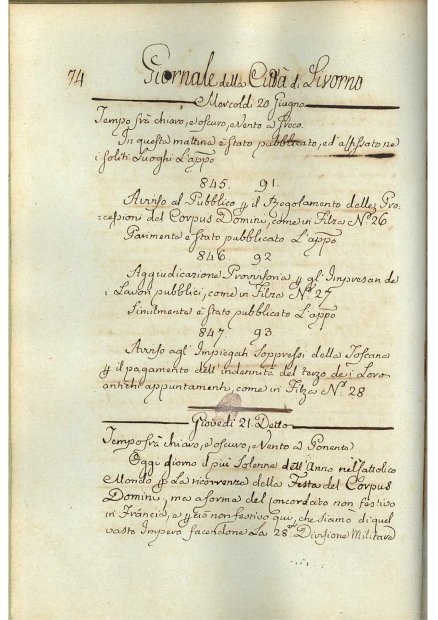 74 Giornale della Città di Livorno
Mercoldì 20 Giugno
Tempo frà chiaro, e oscuro, e Vento a Siroco.
In questa mattina è stato pubblicato, ed affissato ne
i soliti Luoghi L'app.o
845. 91.
Avviso al Pubblico p il Regolamento delle Pro=
=cessioni del Corpus Domini, come in Filza N.o 26
Parimente è stato pubblicato L'app.o
846. 92
Aggiudicazione Provvisoria p gl'Impresari de
i Lavori pubblici, come in Filza N.o 27
Similmente è stato pubblicato L'app.o
847 93.
Avviso agl'Impiegati Soppressi della Toscana
p il pagamento dell'indennità del terzo de i Loro
antichi appuntamenti, come in Filza N.o 28
Giovedì 21. Detto
Tempo frà chiaro, e oscuro, e Vento a Ponente
Oggi giorno il più Solenne dell'Anno nel Cattolico
Mondo p La ricorrenza della Festa del Corpus
Domini, ma a forma del concordato non festivo
in Francia, e p ciò non festivo qui, che siamo di quel
vasto Impero facendone La 28.a Divisione Militare